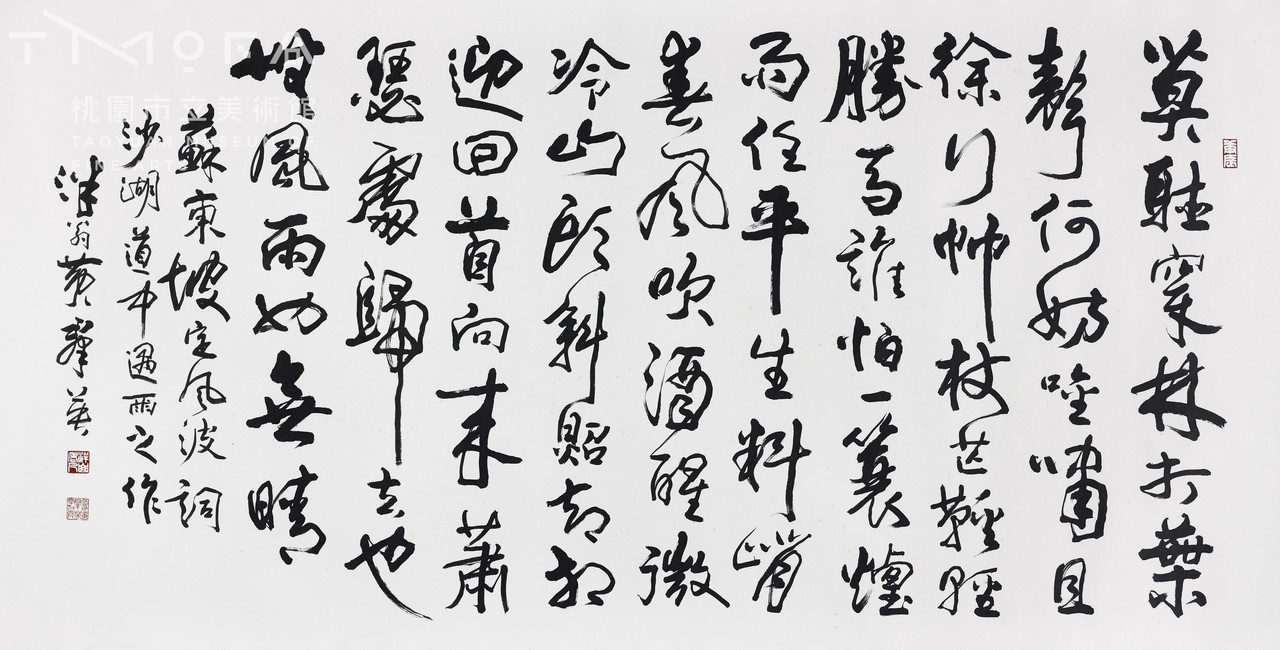 莫聽穿林打葉
聲何妨唫嘯且
徐行竹杖芒鞵輕
勝馬誰怕一蓑煙
雨任平生料峭
春風吹酒醒微
冷山頭斜照却相
迎回首向來蕭
瑟處歸去也
無風雨也無晴
蘇東坡定風波詞
沙湖道中遇雨之作
泮翁黃群英
TMOFA
桃園市立美術館
TAOYUAN MUSEUM OF
FINE ARTS